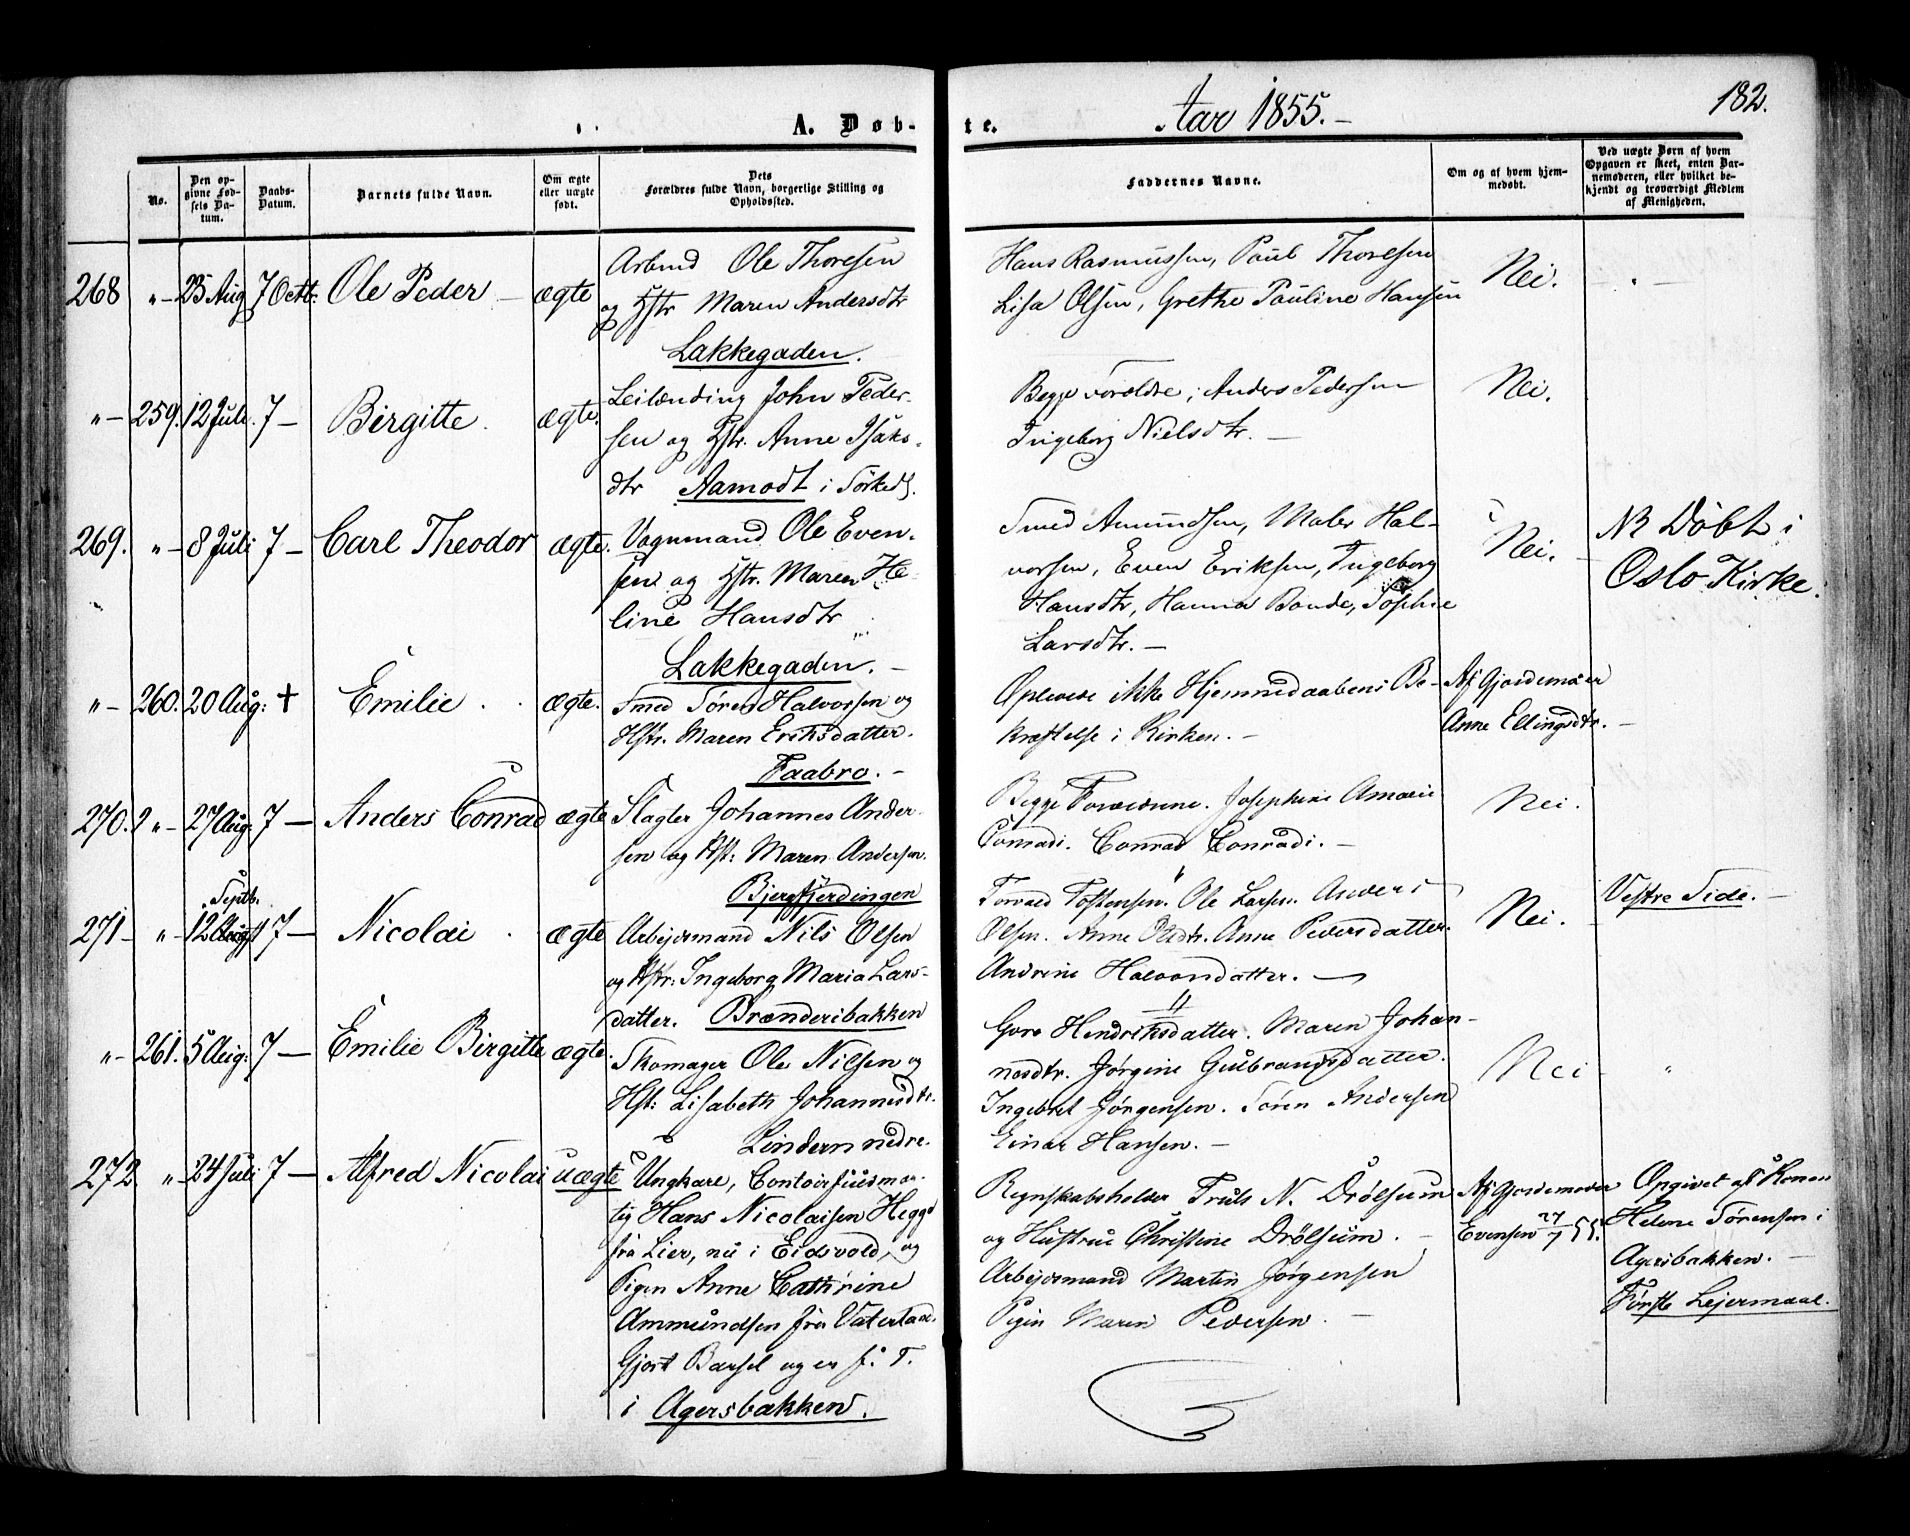 182.
A. Døb- te. Aar 1855.-
No.
Den opgivne Fødsels Datum.
Daabs-Datum.
Barnets fulde Navn.
Om ægte eller uægte født.
Dets Forældres fulde Navn, borgerlige Stilling og Opholdssted.
Faddernes Navne.
Om og af hvem hjemmedøbt.
Ved uægte Børn af hvem Opgaven er skeet, enten Barnemoderen, eller hvilket bekjendt og troværdigt Medlem af Menigheden.
268 „- 23 Aug 7 Octb: Ole Peder - ægte
Arbmd Ole Thoresen
og Hstr Maren Andersdtr
Lakkegaden.
Hans Rasmussen, Paul Thoresen
Lisa Olsen, Grethe Pauline Hansen
Nei.
„- 259. 12 Juli. 7- Birgitte. ægte.
Leilænding John Peder-
sen og Hstr. Anne Isaks-
dtr Aamodt i Sørked.
Begge Forældre, Anders Pedersen
Ingeborg Nielsdtr. -
Nei.
269. „- 8 Juli 7- Carl Theodor ægte.
Vognmand Ole Even-
sen og Hstr. Maren He-
line Hansdtr
Lakkegaden. -
Smed Amundsen, Maler Hal-
vorsen, Even Eriksen, Ingeborg
Hansdtr, Hanna Bonde, Sophie
Larsdtr. -
Nei.
NB Døbt i
Oslo Kirke.
„- 260. 20 Aug: † Emilie . . ægte.
Smed Søren Halvorsen og
Hstr. Maren Eriksdatter.
Faabro. -
Oplevede ikke Hjemmedaabens Be-
kræftelse i Kirken. -
Af Gjordemoder
Anne Ellingsdtr. -
270. 2 „- 27 Aug: 7- Anders Conrad ægte
Slagter Johannes Ander-
sen og Hst: Maren Andersen.
Bjergfjerdingen
Begge Forældrene. Josephine Amalie
Conradi. Conrad Conradi. -
Nei.
271- „- 12 Septb. 7- Nicolai . ægte
Arbejdsmand Nils Olsen
og Hstr: Ingeborg Maria Lars-
datter. Brænderibakken
Torvald Tostensen. Ole Larsen. Anders
Olsen. Anne Olsdtr. Anne Pedersdatter.
Andrine Halvorsdatter. -
Nei.
Vestre Side. -
„- 261. 5 Aug: 7- Emilie Birgitte ægte.
Skomager Ole Nilsen og
Hst: Lisabeth Johannesdtr.
Lindern nedre.
Goro Hendriksdatter. Maren Johan-
nesdtr. Jørgine Gulbrandsdatter.
Ingebret Jørgensen. Søren Andersen
Einar Hansen. -
Nei „
272. „- 24 Juli 7- Alfred Nicolai uægte
Ungkarl, Contoirfuldmæg-
tig Hans Nicolaisen Hegge
fra Lier, nu i Eidsvold, og
Pigen Anne Cathrine
Ammundsen fra Vaterland.
Gjort Barsel og er f. T.
i Agersbakken.
Regnskabsholder Truls N. Drølsum
og Hustrue Christine Drølsum. -
Arbejdsmand Martin Jørgensen
Pigen Maren Pedersen. -
Af Gjordemoder
Evensen 27/7 55.
Opgivet af Konen
Helene Sørensen i
Agersbakken. -
Første Lejermaal.